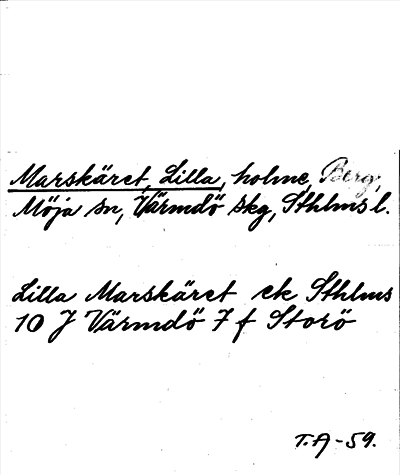 Marskäret, Lilla, holme, Berg,
Möja sn, Värmdö skg, Sthlms l.
Lilla Marskäret ek Sthlms
10 J Värmdö 7 f Storö
T.A-59.